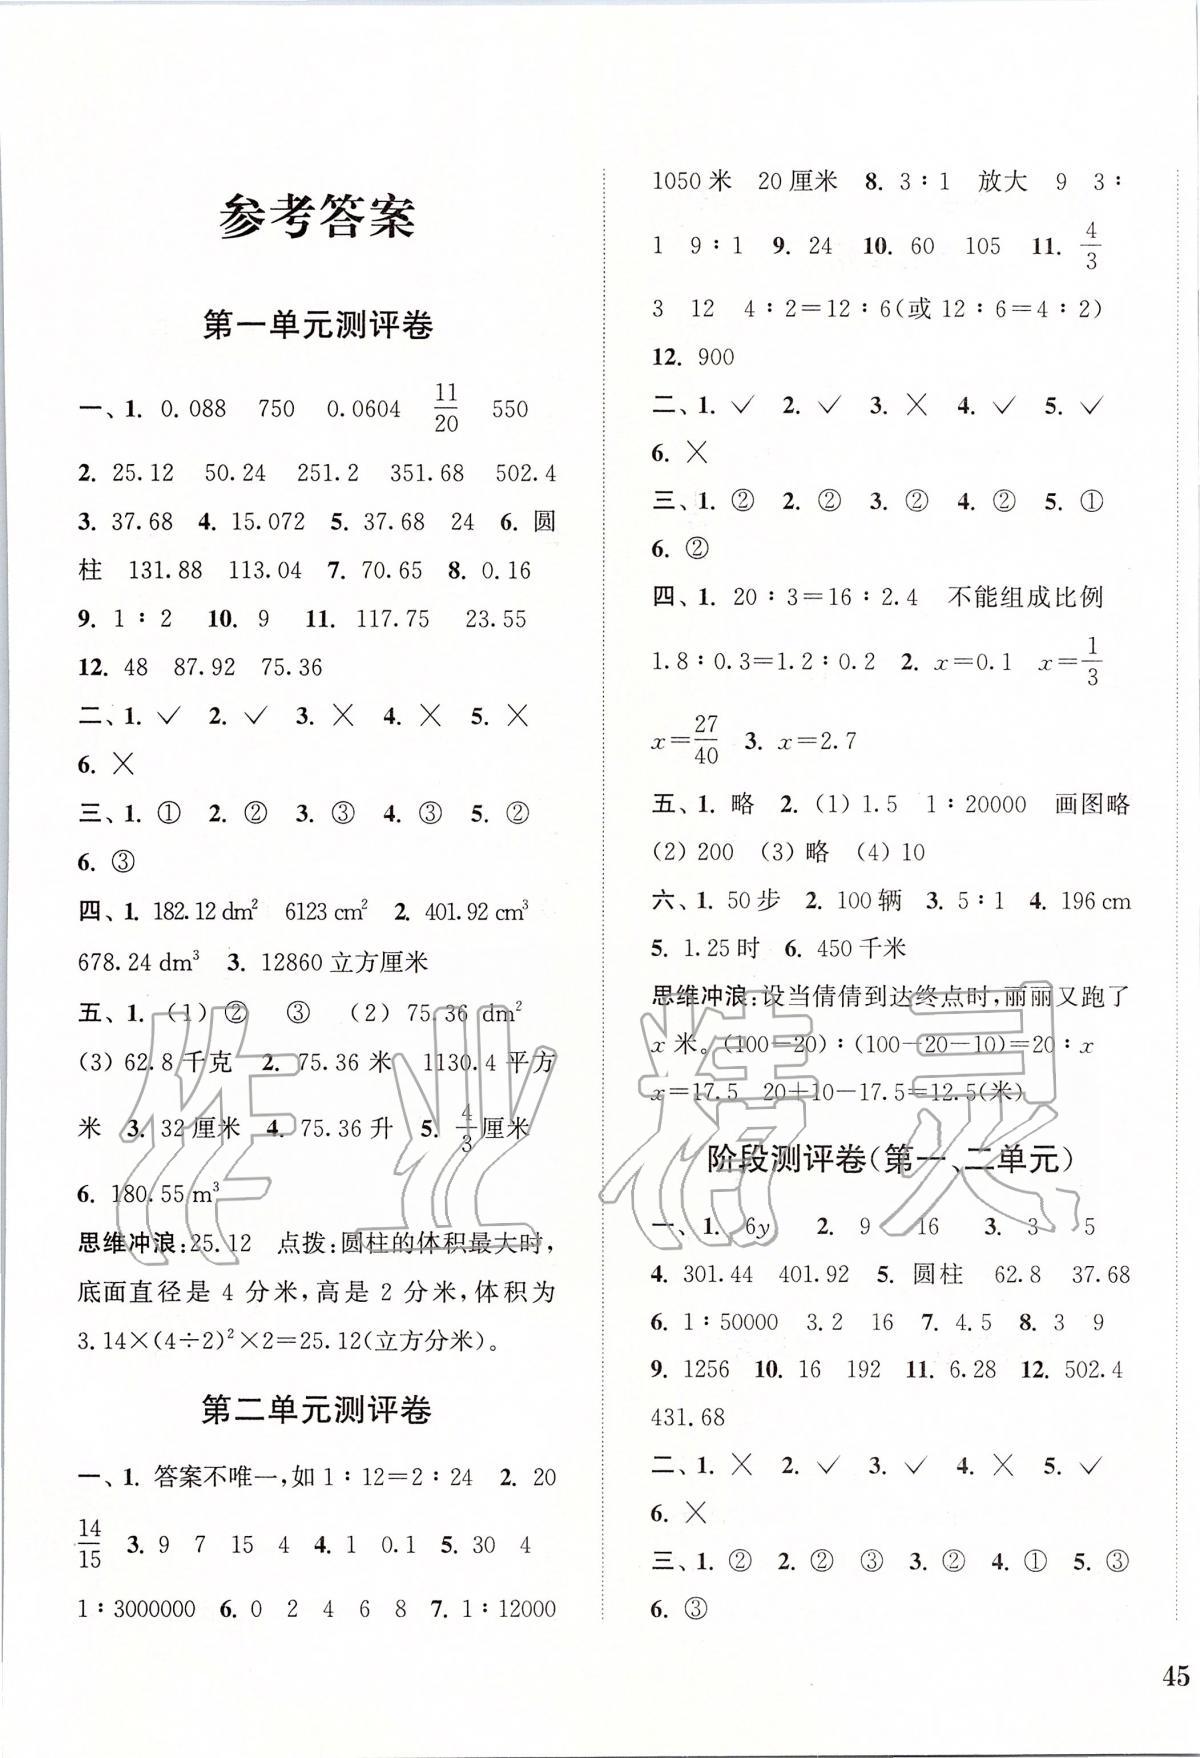 参考答案
第一单元测评卷
一、1. 0.088 750 0.0604 11/20 550
2. 25.12 50.24 251.2 351.68 502.4
3. 37.68 4. 15.072 5. 37.68 24 6. 圆
柱 131.88 113.04 7. 70.65 8. 0.16
9. 1∶2 10. 9 11. 117.75 23.55
12. 48 87.92 75.36
二、1. ✓ 2. ✓ 3. ✕ 4. ✕ 5. ✕
6. ✕
三、1. ① 2. ② 3. ③ 4. ③ 5. ②
6. ③
四、1. 182.12 dm² 6123 cm² 2. 401.92 cm³
678.24 dm³ 3. 12860立方厘米
五、1. (1) ② ③ (2) 75.36 dm²
(3) 62.8千克 2. 75.36米 1130.4平方
米 3. 32厘米 4. 75.36升 5. 4/3厘米
6. 180.55 m³
思维冲浪:25.12 点拨:圆柱的体积最大时,
底面直径是4分米,高是2分米,体积为
3.14×(4÷2)²×2=25.12(立方分米)。
第二单元测评卷
一、1. 答案不唯一,如1∶12=2∶24 2. 20
14/15 3. 9 7 15 4 4. 1 0.1 5. 30 4
1∶3000000 6. 0 2 4 6 8 7. 1∶12000
1050米 20厘米 8. 3∶1 放大 9 3∶
1 9∶1 9. 24 10. 60 105 11. 4/3
3 12 4∶2=12∶6(或12∶6=4∶2)
12. 900
二、1. ✓ 2. ✓ 3. ✕ 4. ✓ 5. ✓
6. ✕
三、1. ② 2. ② 3. ② 4. ② 5. ①
6. ②
四、1. 20∶3=16∶2.4 不能组成比例
1.8∶0.3=1.2∶0.2 2. x=0.1 x=1/3
x=27/40 3. x=2.7
五、1. 略 2. (1) 1.5 1∶20000 画图略
(2) 200 (3) 略 (4) 10
六、1. 50步 2. 100辆 3. 5∶1 4. 196 cm
5. 1.25时 6. 450千米
思维冲浪:设当倩倩到达终点时,丽丽又跑了
x米。(100−20)∶(100−20−10)=20∶x
x=17.5 20+10−17.5=12.5(米)
阶段测评卷(第一、二单元)
一、1. 6y 2. 9 16 3. 3 5
4. 301.44 401.92 5. 圆柱 62.8 37.68
6. 1∶50000 3.2 16 7. 4.5 8. 3 9
9. 1256 10. 16 192 11. 6.28 12. 502.4
431.68
二、1. ✕ 2. ✓ 3. ✓ 4. ✕ 5. ✓
6. ✕
三、1. ② 2. ② ③ 3. ② 4. ① 5. ③
6. ③
45
作业精灵